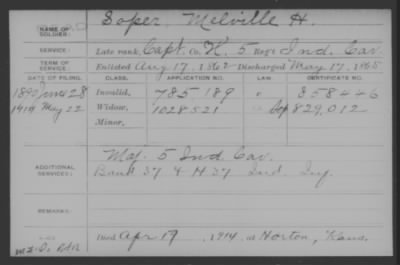 NAME OF SOLDIER: Soper, Melville H.
SERVICE: Late rank, Capt. Co. K, 5 Reg't Ind. Cav.
TERM OF SERVICE: Enlisted Aug 17, 1862 Discharged May 17, 1865
DATE OF FILING. CLASS. APPLICATION NO. LAW. CERTIFICATE NO.
1890 June 28 Invalid, 785189 " 858446
1914 May 22 Widow, 1028521 829,012
Minor,
ADDITIONAL SERVICES: Maj. 5 Ind Cav.
Band 37 & H 37 Ind. Inf.
REMARKS:
Died Apr 19, 1914, at Norton, Kans.